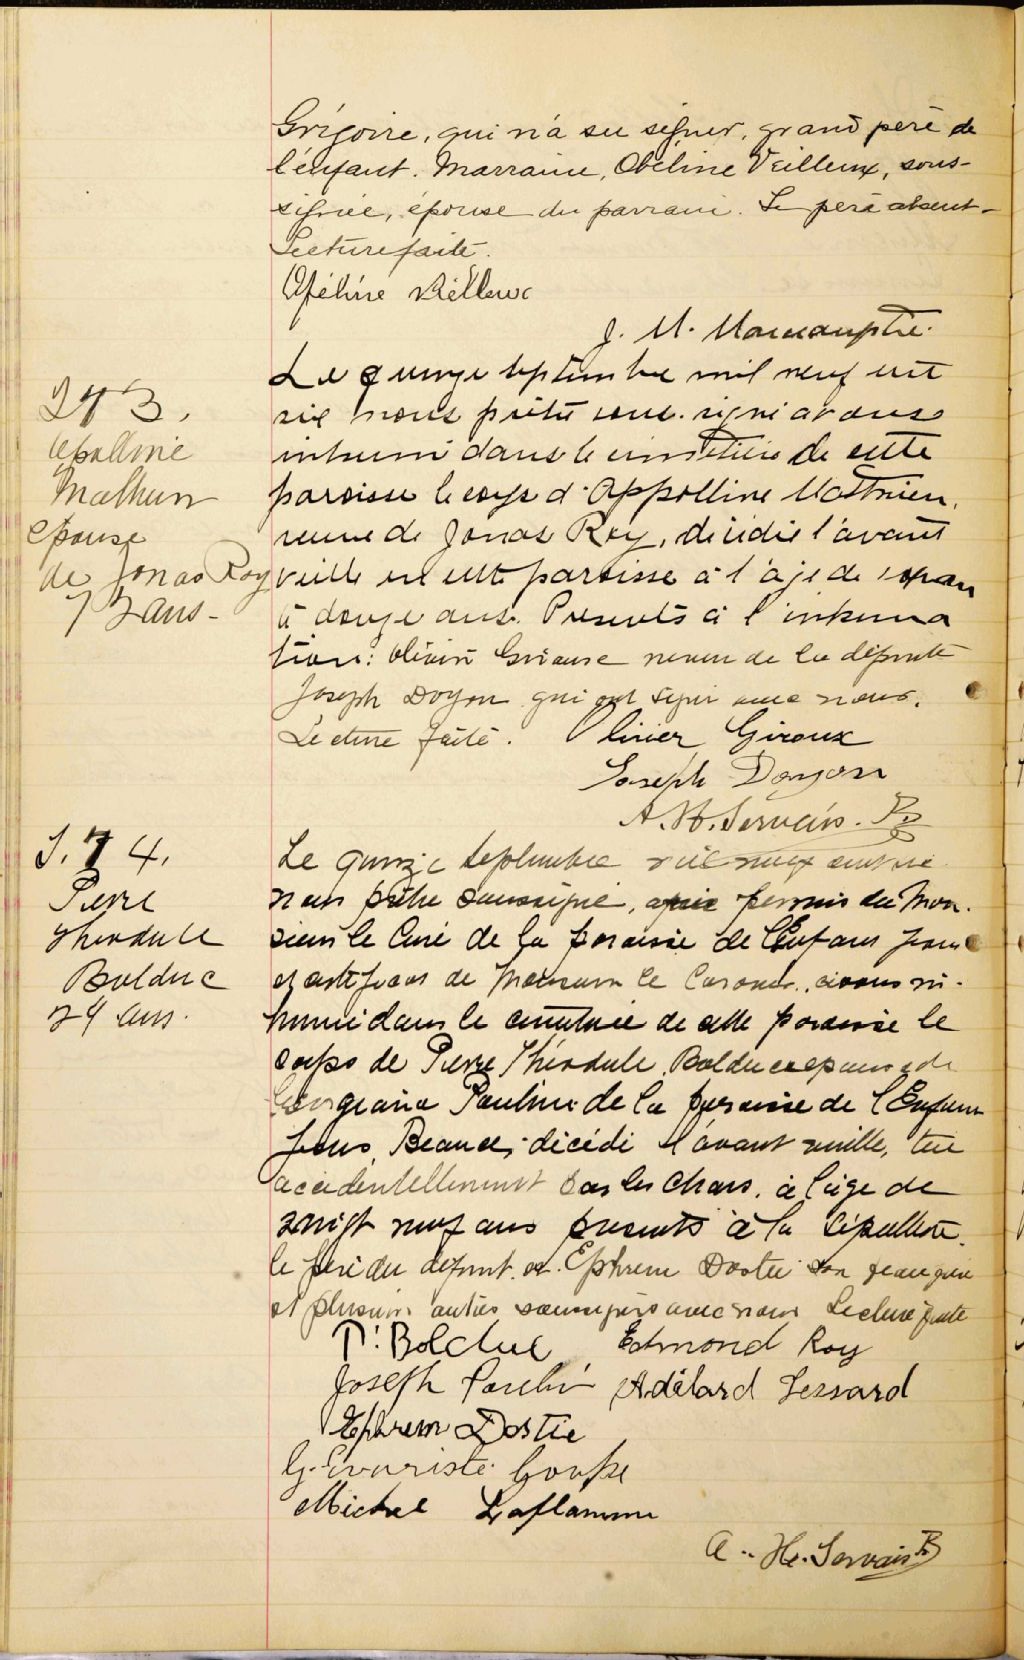 Grégoire, qui n'a su signer, grand père de
l'enfant. Marraine, Obéline Veilleux, sous-
signée, épouse du parrain. Le père absent-
Lecture faite.
Obéline Veilleux
J. M.
Le quinze septembre mil neuf cent
six nous prêtre sous-signé avons
inhumé dans le cimetière de cette
paroisse le corps d'Appolline Mathieu,
veuve de Jonas Roy, décédée l'avant
veille en cette paroisse à l'âge de soixan
te douze ans. Présents à l'inhuma
tion: Olivier Giroux neveu de la défunte
Joseph Doyon qui ont signé avec nous.
Lecture faite. Olivier Giroux
Joseph Doyon
A. H. Gervais. Ptre
273.
Apolline
Mathieu
épouse
de Jonas Roy
72 ans-
S. 74.
Pierre
Théodule
Bolduc
29 ans.
Le quinze septembre mil neuf cent six
nous prêtre soussigné, avec permis du Mon-
sieur le Curé de la paroisse de l'Enfant Jésus
et certificat de Monsieur le Coroner, avons in-
humé dans le cimetière de cette paroisse le
corps de Pierre Théodule Bolduc époux de
Georgiana Poulin de la paroisse de l'Enfant
Jésus, Beauce, décédé l'avant veille, tué
accidentellement par les chars, à l'âge de
vingt neuf ans présents à la sépulture.
le père du défunt et Ephrem Dostie son beau père
et plusieurs autres soussignés avec nous Lecture faite
P. Bolduc Edmond Roy
Joseph Poulin Adélard Lessard
Ephrem Dostie
G. Evariste
Michel Laflamme
A. H. Gervais Ptre